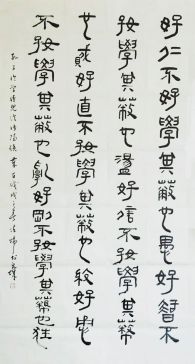 好仁不好學其蔽也愚好智不
好學其蔽也蕩好信不好學其蔽
也賊好直不好學其蔽也絞好勇
不好學其蔽也亂好剛不好學其蔽也狂